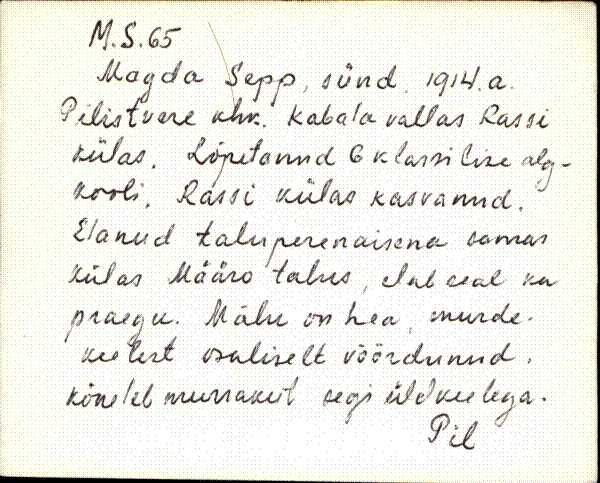 M.S.65
Magda Sepp, sünd. 1914.a.
Pilistvere khk. Kabala vallas Rassi
külas. Lõpetanud 6 klassilise alg-
kooli. Rassi külas kasvanud.
Elanud taluperenaisena samas
külas Määro talus, elab seal ka
praegu. Mälu on hea, murde-
keelest osaliselt võõrdunud.
kõneleb murrakut segi üldkeelega.
Pil